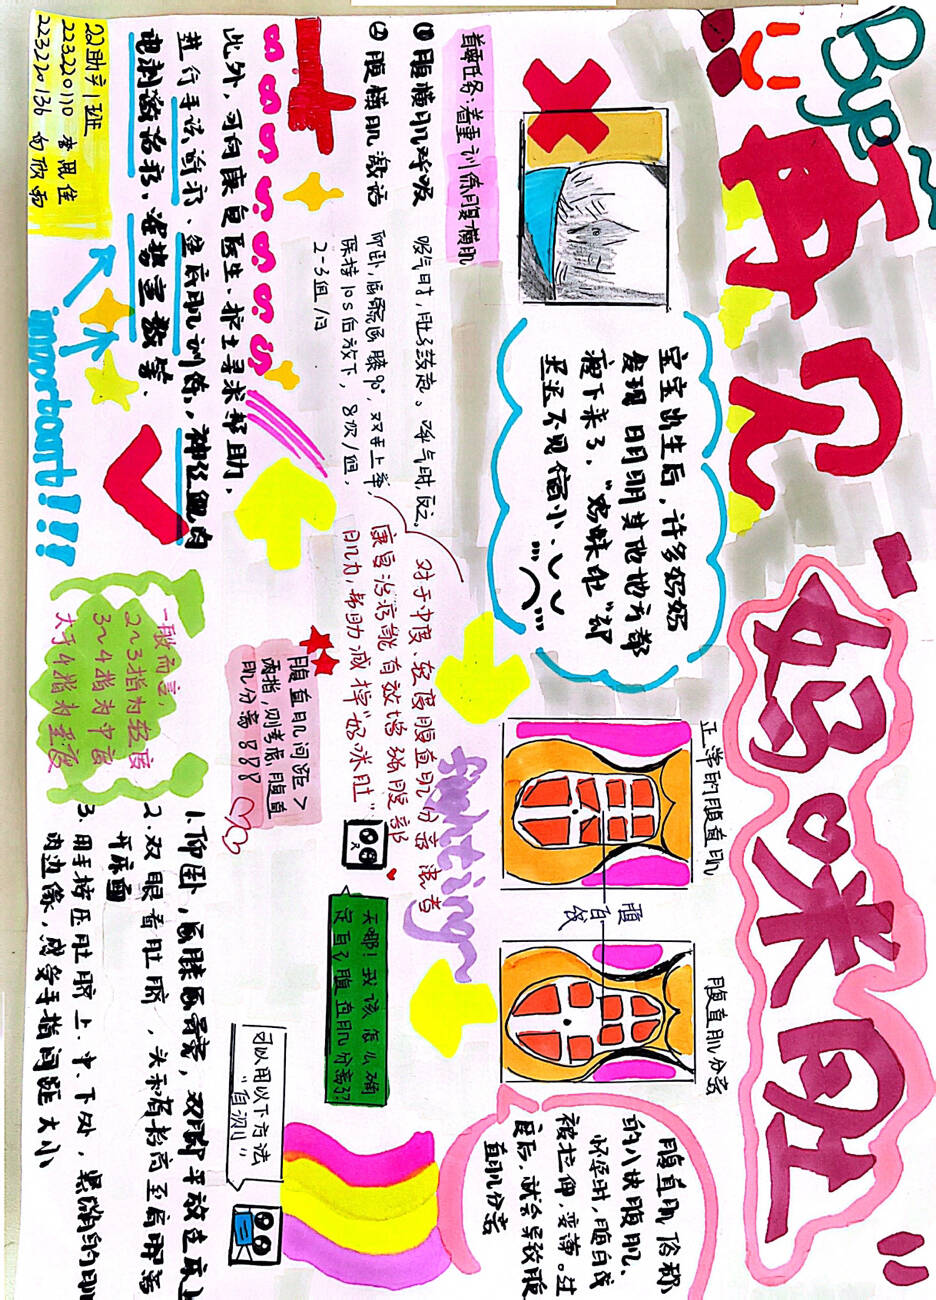 Bye
再见
"妈咪肚"
宝宝出生后，许多妈妈
发现 明明其他地方都
瘦下来了，"忽妹肚"却
正常的腹直肌
腹直肌分离
腹白线
腹直肌俗称
的八块腹肌、
怀孕时，腹白线
被拉伸，变薄。过
度后，就会导致腹
直肌分离
天哪！我该怎么确
定有了腹直肌分离？？
可以用以下方法
"自测"
1. 仰卧，屈膝屈髋，双脚平放在床上
2. 双眼看肚脐，头和肩抬高至肩部离
开床面
3. 用手按压肚脐上、中、下处，紧绷的肌
肉边缘，感受手指间距大小
腹直肌间距>
两指，则考虑腹直
肌分离888
一般而言，
2~3指为轻度
3~4指为中度
大于4指为重度
fighting
对于中度、轻度腹直肌分离患者
康复治疗能有效增强腹部
肌力，帮助减掉"妈咪肚"
首要任务：着重训练腹横肌
① 腹横肌呼吸
吸气时，肚子鼓起、呼气时反之。
② 腹横肌激活
仰卧，屈髋屈膝90°，双手上举，
保持10s后放下，8次/组，
2-3组/日
此外，可向康复医生、护士寻求帮助，
进行手法治疗、盆底肌训练，神经肌肉
电刺激治疗，健康宣教等．
important!!!
22助产1班
223220110 李思佳
223220136 向欣雨